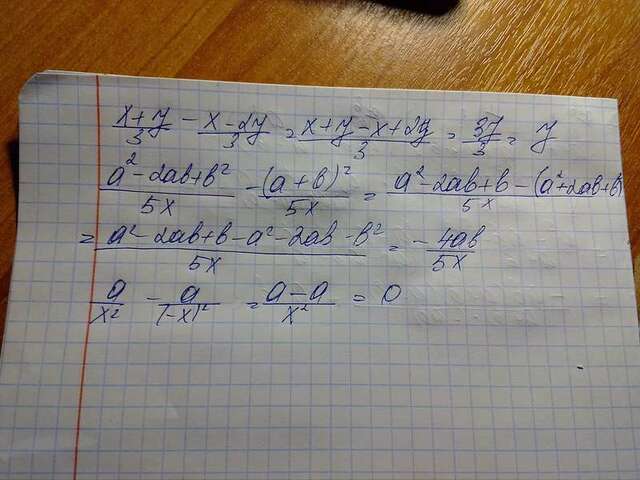 (x+y)/3 - (x-2y)/3 = (x+y-x+2y)/3 = 3y/3 = y
(a²-2ab+b²)/5x - (a+b)²/5x = (a²-2ab+b-(a²+2ab+b))/5x
= (a²-2ab+b-a²-2ab-b²)/5x = -4ab/5x
a/x² - a/(-x)² = (a-a)/x² = 0